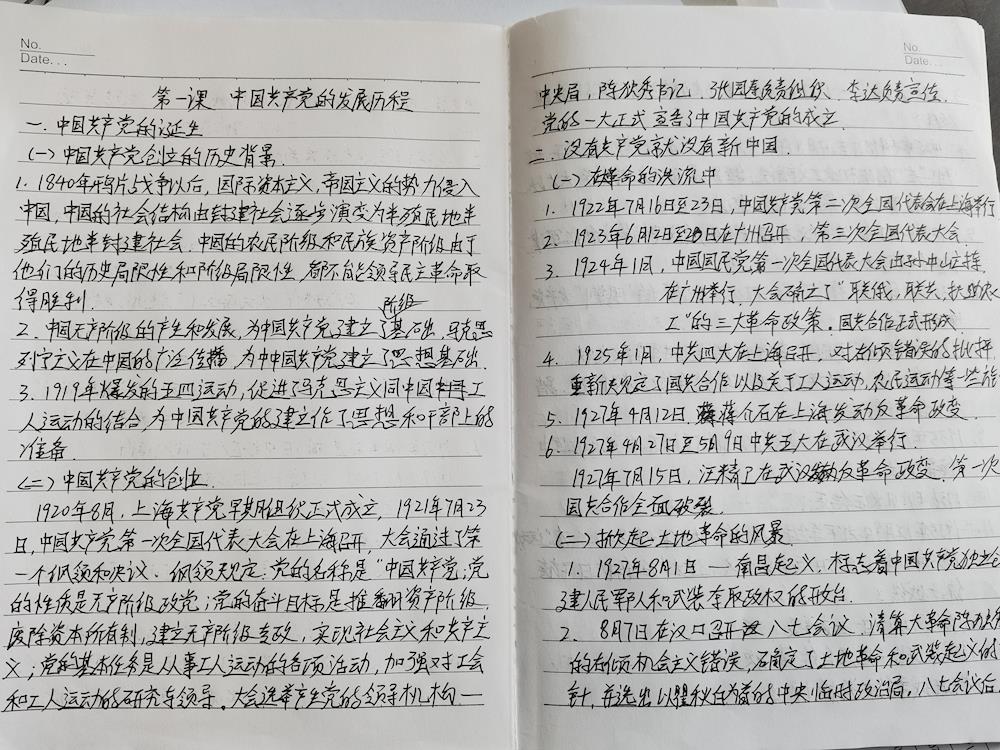 No.
Date...
第一课 中国共产党的发展历程
一.中国共产党的诞生
(一)中国共产党创立的历史背景.
1. 1840年鸦片战争以后,国际资本主义,帝国主义的势力侵入
中国,中国的社会结构由封建社会逐步演变为半殖民地半
殖民地半封建社会.中国的农民阶级和民族资产阶级由于
他们的历史局限性和阶级局限性,都不能领导民主革命取
得胜利.
阶级
2. 中国无产阶级的产生和发展,为中国共产党建立了基础.马克思
列宁主义在中国的广泛传播,为中中国共产党建立了思想基础.
3. 1919年爆发的五四运动,促进了马克思主义同中国工
人运动的结合,为中国共产党的建立作了思想和干部上的
准备.
(二)中国共产党的创立.
1920年8月,上海共产党早期组织正式成立,1921年7月23
日,中国共产党第一次全国代表大会在上海召开,大会通过了第
一个纲领和决议.纲领规定:党的名称是"中国共产党;党
的性质是无产阶级政党;党的奋斗目标是推翻资产阶级,
废除资本所有制,建立无产阶级专政,实现社会主义和共产主
义;党的基本任务是从事工人运动的各项活动,加强对工会
和工人运动的研究与领导.大会选举产生党的领导机构一
No.
Date...
中央局,陈独秀书记,张国焘负责组织,李达负责宣传.
党的一大正式宣告了中国共产党的成立.
二.没有共产党就没有新中国.
(一)在革命的洪流中
1. 1922年7月16日至23日,中国共产党第二次全国代表会在上海举行
2. 1923年6月12日至20日在广州召开,第三次全国代表大会.
3. 1924年1月,中国国民党第一次全国代表大会由孙中山主持.
在广州举行.大会确立了"联俄,联共,扶助农
工"的三大革命政策.国共合作正式形成.
4. 1925年1月,中共四大在上海召开,对左倾错误的批评,
重新规定了国共合作以及关于工人运动,农民运动等一些
5. 1927年4月12日 蒋介石在上海发动反革命政变.
6. 1927年4月27日至5月9日中共五大在武汉举行.
1927年7月15日,汪精卫在武汉反革命政变.第一次
国共合作全面破裂.
(二)掀起土地革命的风暴
1. 1927年8月1日 — 南昌起义,标志着中国共产党独立
建人民军队和武装夺取政权的开始.
2. 8月7日在汉口召开 八七会议.清算大革命陈独
的右倾机会主义错误,确定了土地革命和武装起义的
针,并选出以瞿秋白为首的中央临时政治局,八七会议后